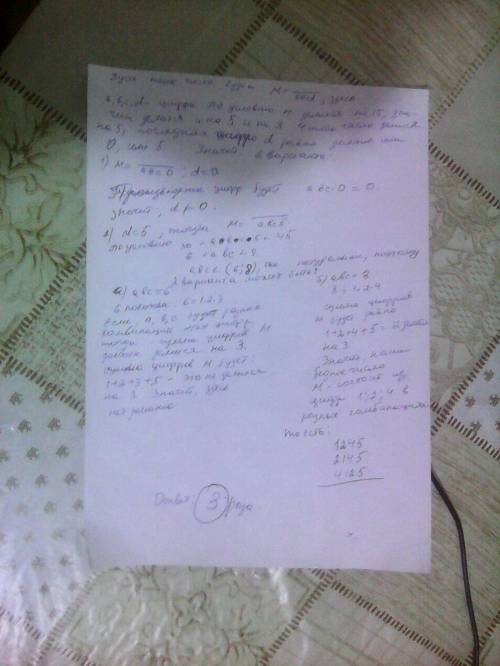 Пусть наше число будет M = abcd, здесь
a, b, c, d - цифры. По условию M делится на 15, зна-
чит делится и на 5, и на 3. Чтобы число делилось
на 5, последняя цифра d равна должна
0, или 5. Значит 2 варианта
1) M = abc0; d=0.
Произведение цифр будет a·b·c·0 = 0.
значит, d ≠ 0.
2) d=5, тогда M = abc5.
По условию 30 < a·b·c·5 < 45
6 < abc < 9
натуральные, поэтому
2 варианта может быть:
а) abc=6
6 = 1·2·3
Если a, b, c будет равна
комбинации этих цифр,
тогда сумма цифров M
должна делится на 3.
Сумма цифров M будет:
1+2+3+5 - это не делится
на 3. Значит, здесь
нет решения
б) abc = 8
8 = 1·2·4
сумма цифров
M будет равна
1+2+4+5 = 12 делится
на 3
Значит наше
число
M состоит из
цифр 1; 2; 4 в
разных комбинациях
То есть:
1245
2145
4125
Ответ: 3